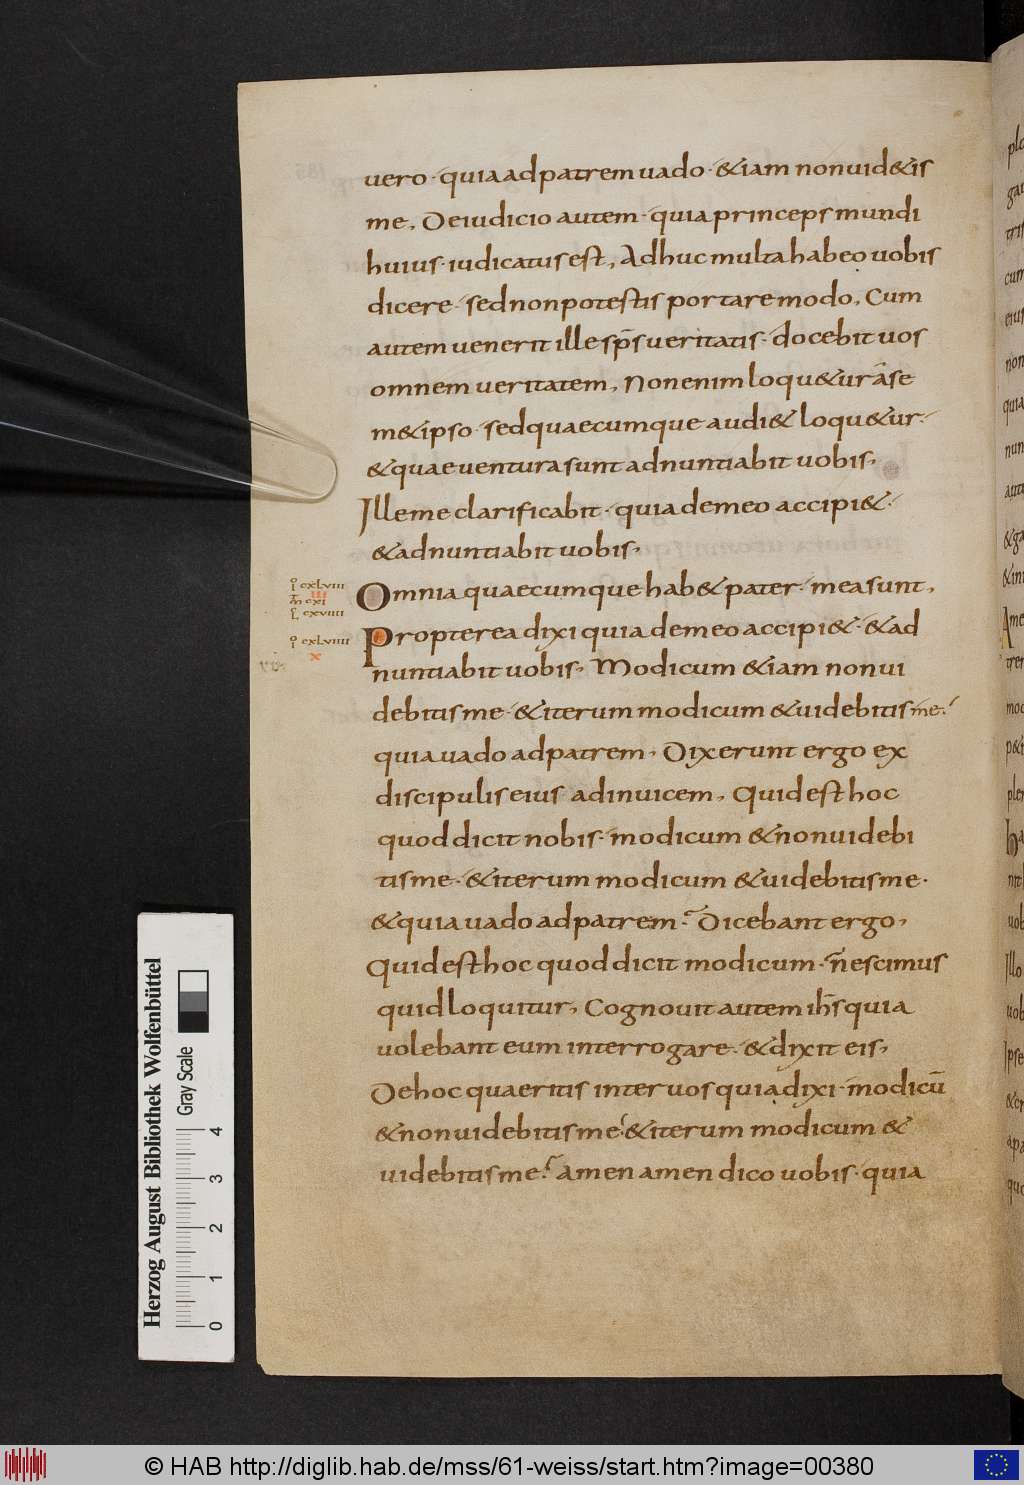 vero · quia ad patrem vado · & iam non vid&is
me, De iudicio autem · quia princeps mundi
huius · iudicatus est, Adhuc multa habeo vobis
dicere · sed non potestis portare modo, Cum
autem venerit ille sp̄s veritatis · docebit vos
omnem veritatem, Non enim loqu&ur a se
m&ipso · sed quaecumque audi& loqu&ur ·
& quae ventura sunt adnuntiabit vobis,
Ille me clarificabit · quia de meo accipi& ·
& adnuntiabit vobis,
Omnia quaecumque hab& pater · mea sunt,
Propterea dixi quia de meo accipi& · & ad
nuntiabit vobis, Modicum & iam non vi
debitis me · & iterum modicum & videbitis me ·
quia vado ad patrem, Dixerunt ergo ex
discipulis eius ad invicem, Quid est hoc
quod dicit nobis · modicum & non videbi
tis me · & iterum modicum & videbitis me ·
& quia vado ad patrem · Dicebant ergo,
Quid est hoc quod dicit modicum · nescimus
quid loquitur, Cognovit autem ih̄s quia
volebant eum interrogare · & dixit eis,
De hoc quaeritis inter vos quia dixi · modicū
& non videbitis me · & iterum modicum &
videbitis me · amen amen dico vobis · quia
cxlviii
iii
cxi
cxviiii
cxlviiii
x
Herzog August Bibliothek Wolfenbüttel
Gray Scale
0 1 2 3 4
© HAB http://diglib.hab.de/mss/61-weiss/start.htm?image=00380